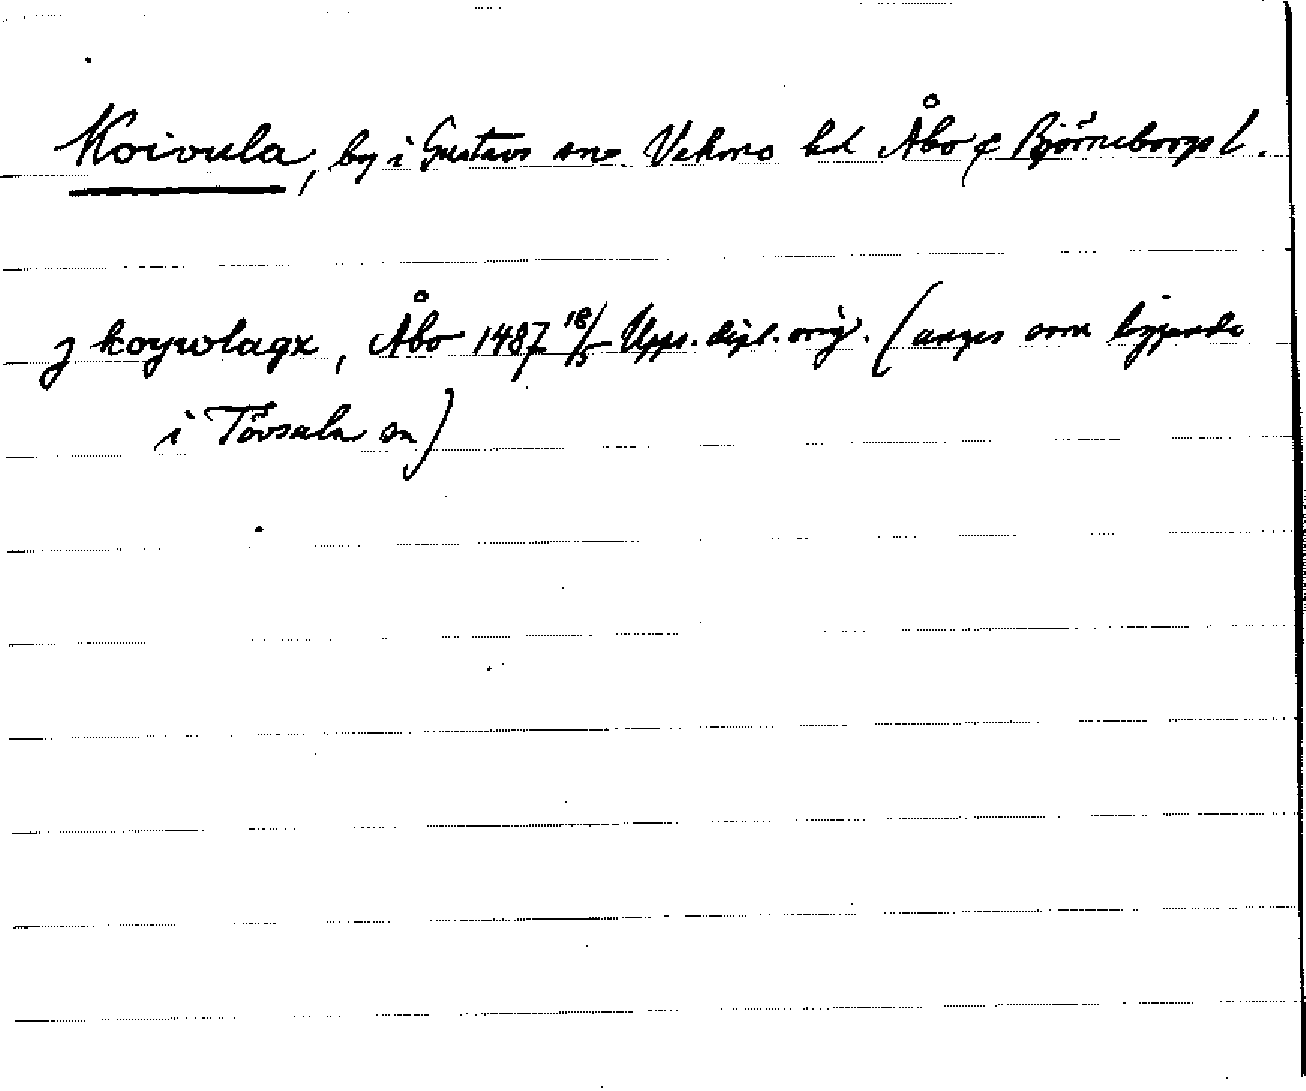 Koivula, by i Gustavs sn Vehmo hd Åbo & Björneborgs l.
j koywolagx, Åbo 1487 18/5 Upps. dipl. orig. (anges som liggande
i Tövsala sn)